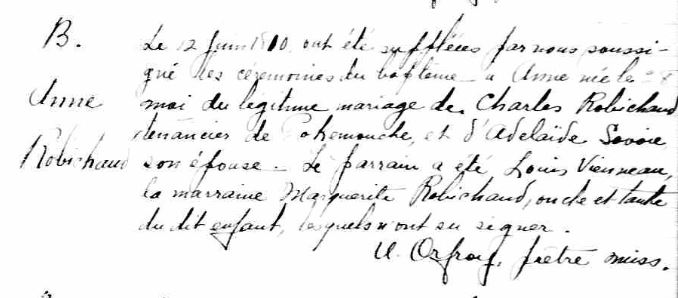 B.
Le 12 Juin 1810 ont été suppléées par nous soussi-
gné les cérémoines du baptême a Anne née le
Anne
moi du legitime mariage de Charles Robichaud
tenancier de Pokemouche, et d'Adelaïde Savoie
Robichaud
son épouse - Le parrain a été Louis Vienneau,
la marraine Marguerite Robichaud, oncle et tante
du dit enfant, lesquels n'ont su signer.
U. Orfroy, prêtre miss.